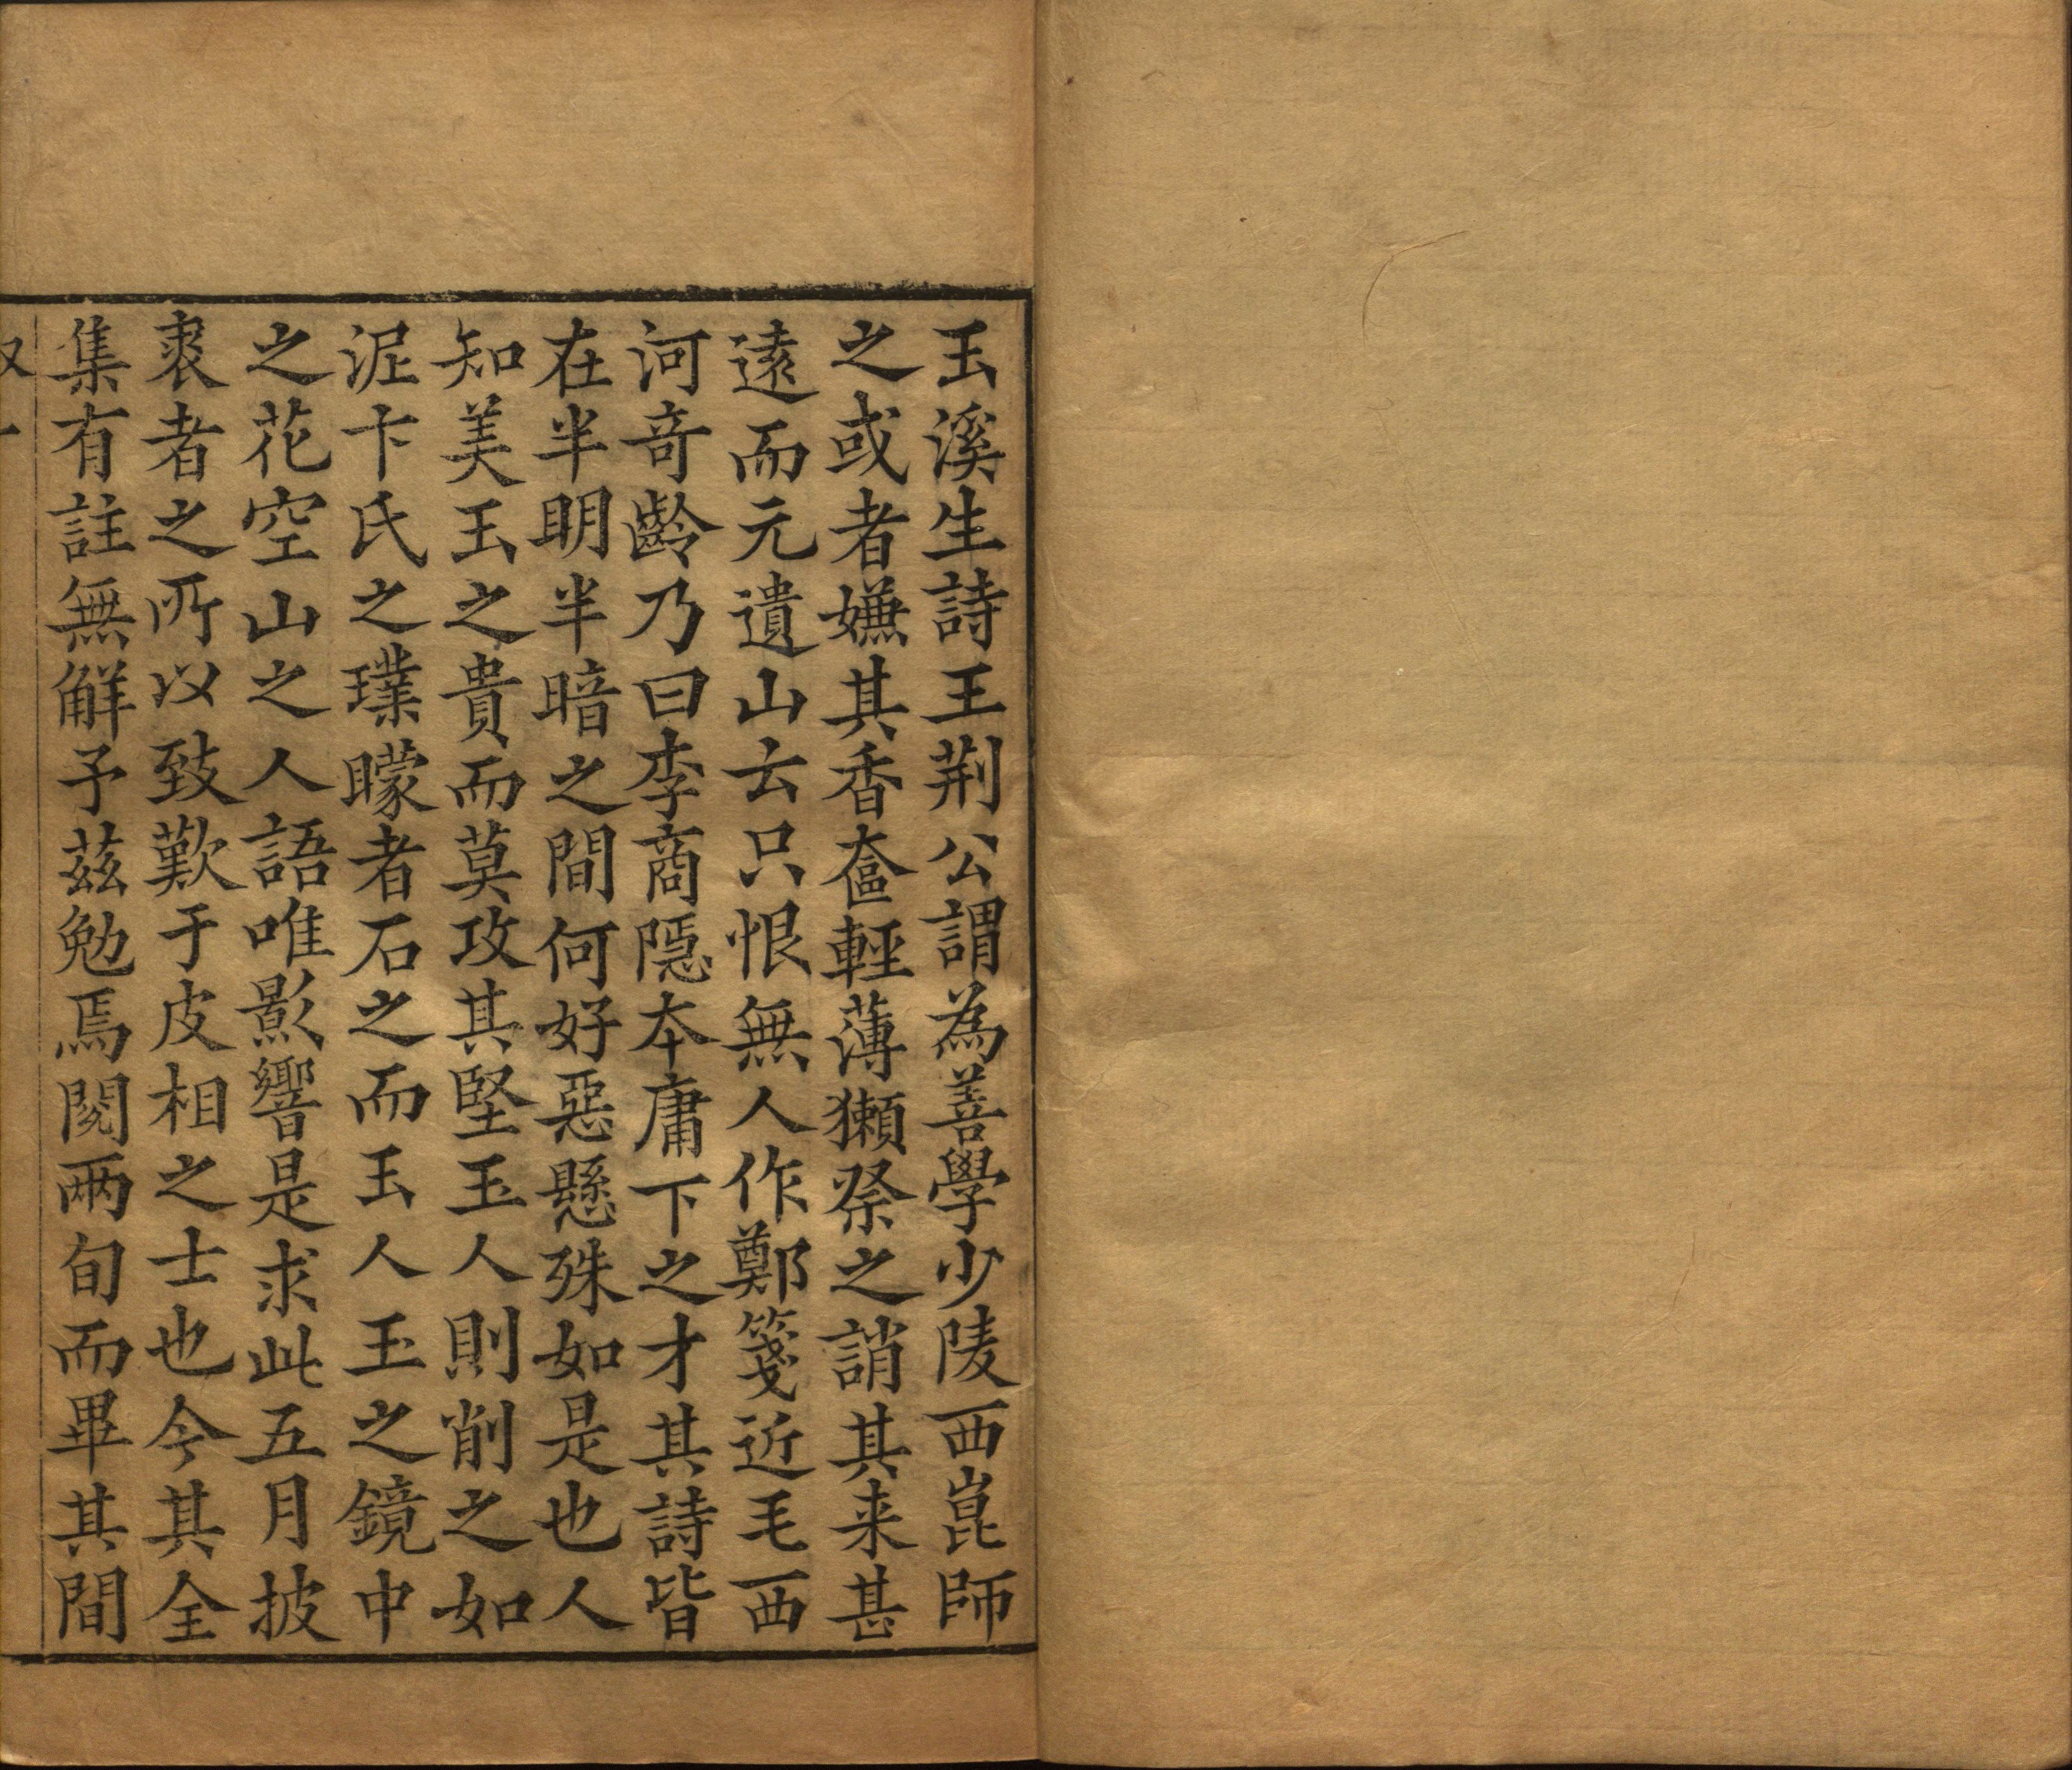 玉溪生詩王荆公謂為善學少陵西崑師
之或者嫌其香奩輕薄獺祭之誚其来甚
遠而元遺山云只恨無人作鄭箋近毛西
河竒齡乃曰李商隠本庸下之才其詩皆
在半明半暗之間何好惡懸殊如是也人
知美玉之貴而莫攻其堅玉人則削之如
泥卞氏之璞矇者石之而玉人玉之鏡中
之花空山之人語唯影響是求此五月披
裘者之所以致歎于皮相之士也今其全
集有註無解予茲勉焉閱兩旬而畢其間